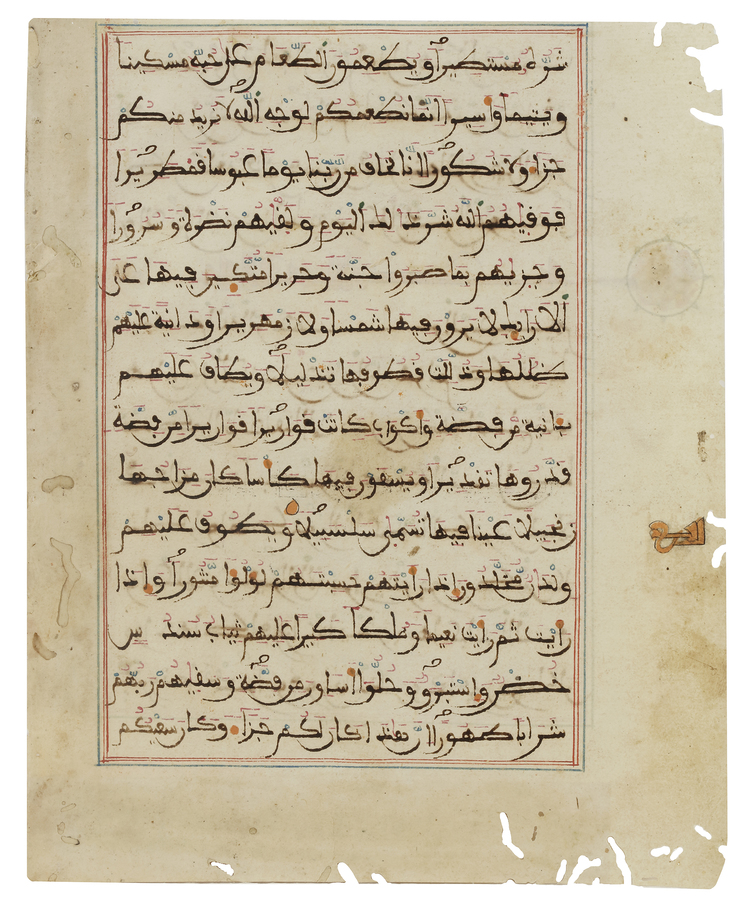 شره مستطيرا ويطعمون الطعام على حبه مسكينا
ويتيما واسيرا انما نطعمكم لوجه الله لا نريد منكم
جزاء ولا شكورا انا نخاف من ربنا يوما عبوسا قمطريرا
فوقيهم الله شر ذلك اليوم ولقيهم نضرة وسرورا
وجزيهم بما صبروا جنة وحريرا متكين فيها على
الارايك لا يرون فيها شمسا ولا زمهريرا ودانية عليهم
ظللها وذللت قطوفها تذليلا ويطاف عليهم
بانية من فضة واكواب كانت قواريرا قواريرا من فضة
قدروها تقديرا ويسقون فيها كاسا كان مزاجها
زنجبيلا عينا فيها تسمى سلسبيلا ويطوف عليهم
ولدان مخلدون اذا رايتهم حسبتهم لولوا منثورا واذا
رايت ثم رايت نعيما وملكا كبيرا عليهم ثياب سندس
خضر واستبرق وحلوا اساور من فضة وسقيهم ربهم
شرابا طهورا ان هذا كان لكم جزاء وكان سعيكم